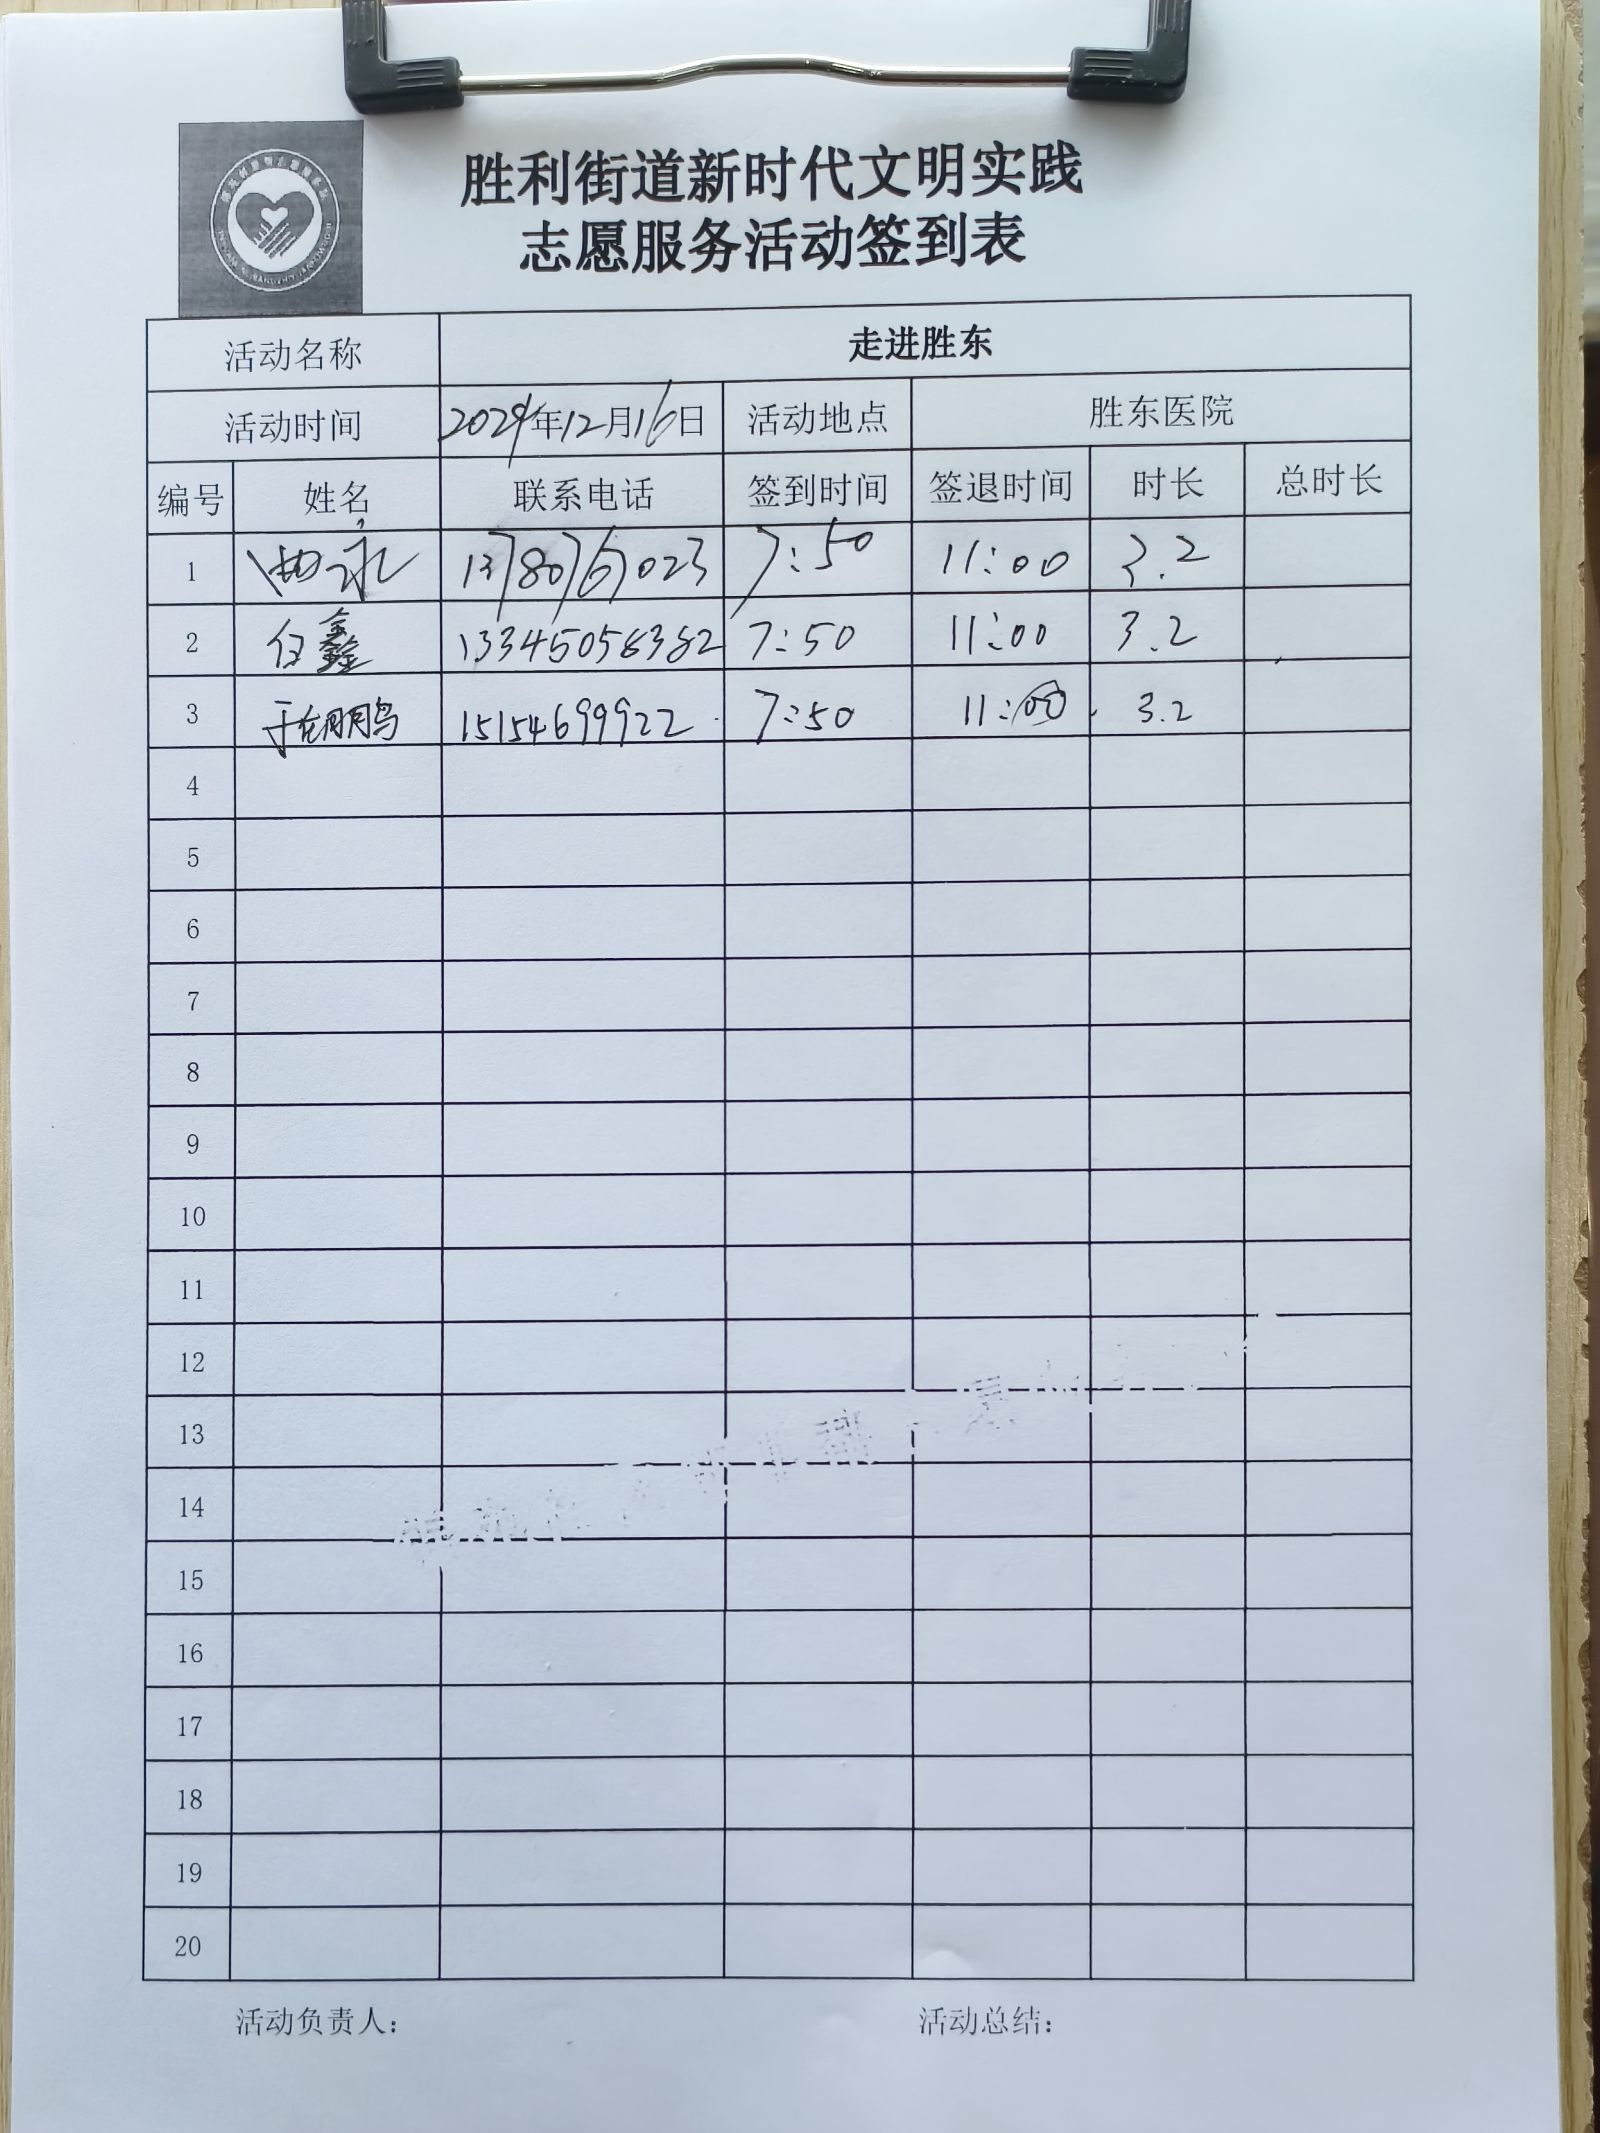 胜利街道新时代文明实践
志愿服务活动签到表
活动名称 走进胜东
活动时间 2024年12月16日 活动地点 胜东医院
编号 姓名 联系电话 签到时间 签退时间 时长 总时长
1 13780767023 7:50 11:00 3.2
2 任鑫 13345058382 7:50 11:00 3.2
3 于鹏 15154699922 7:50 11:00 3.2
4
5
6
7
8
9
10
11
12
13
14
15
16
17
18
19
20
活动负责人: 活动总结: